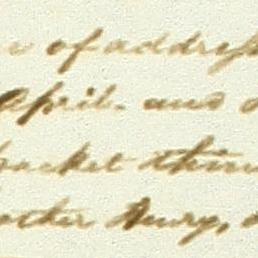 of addres
April. and
packet thin
other Henry,